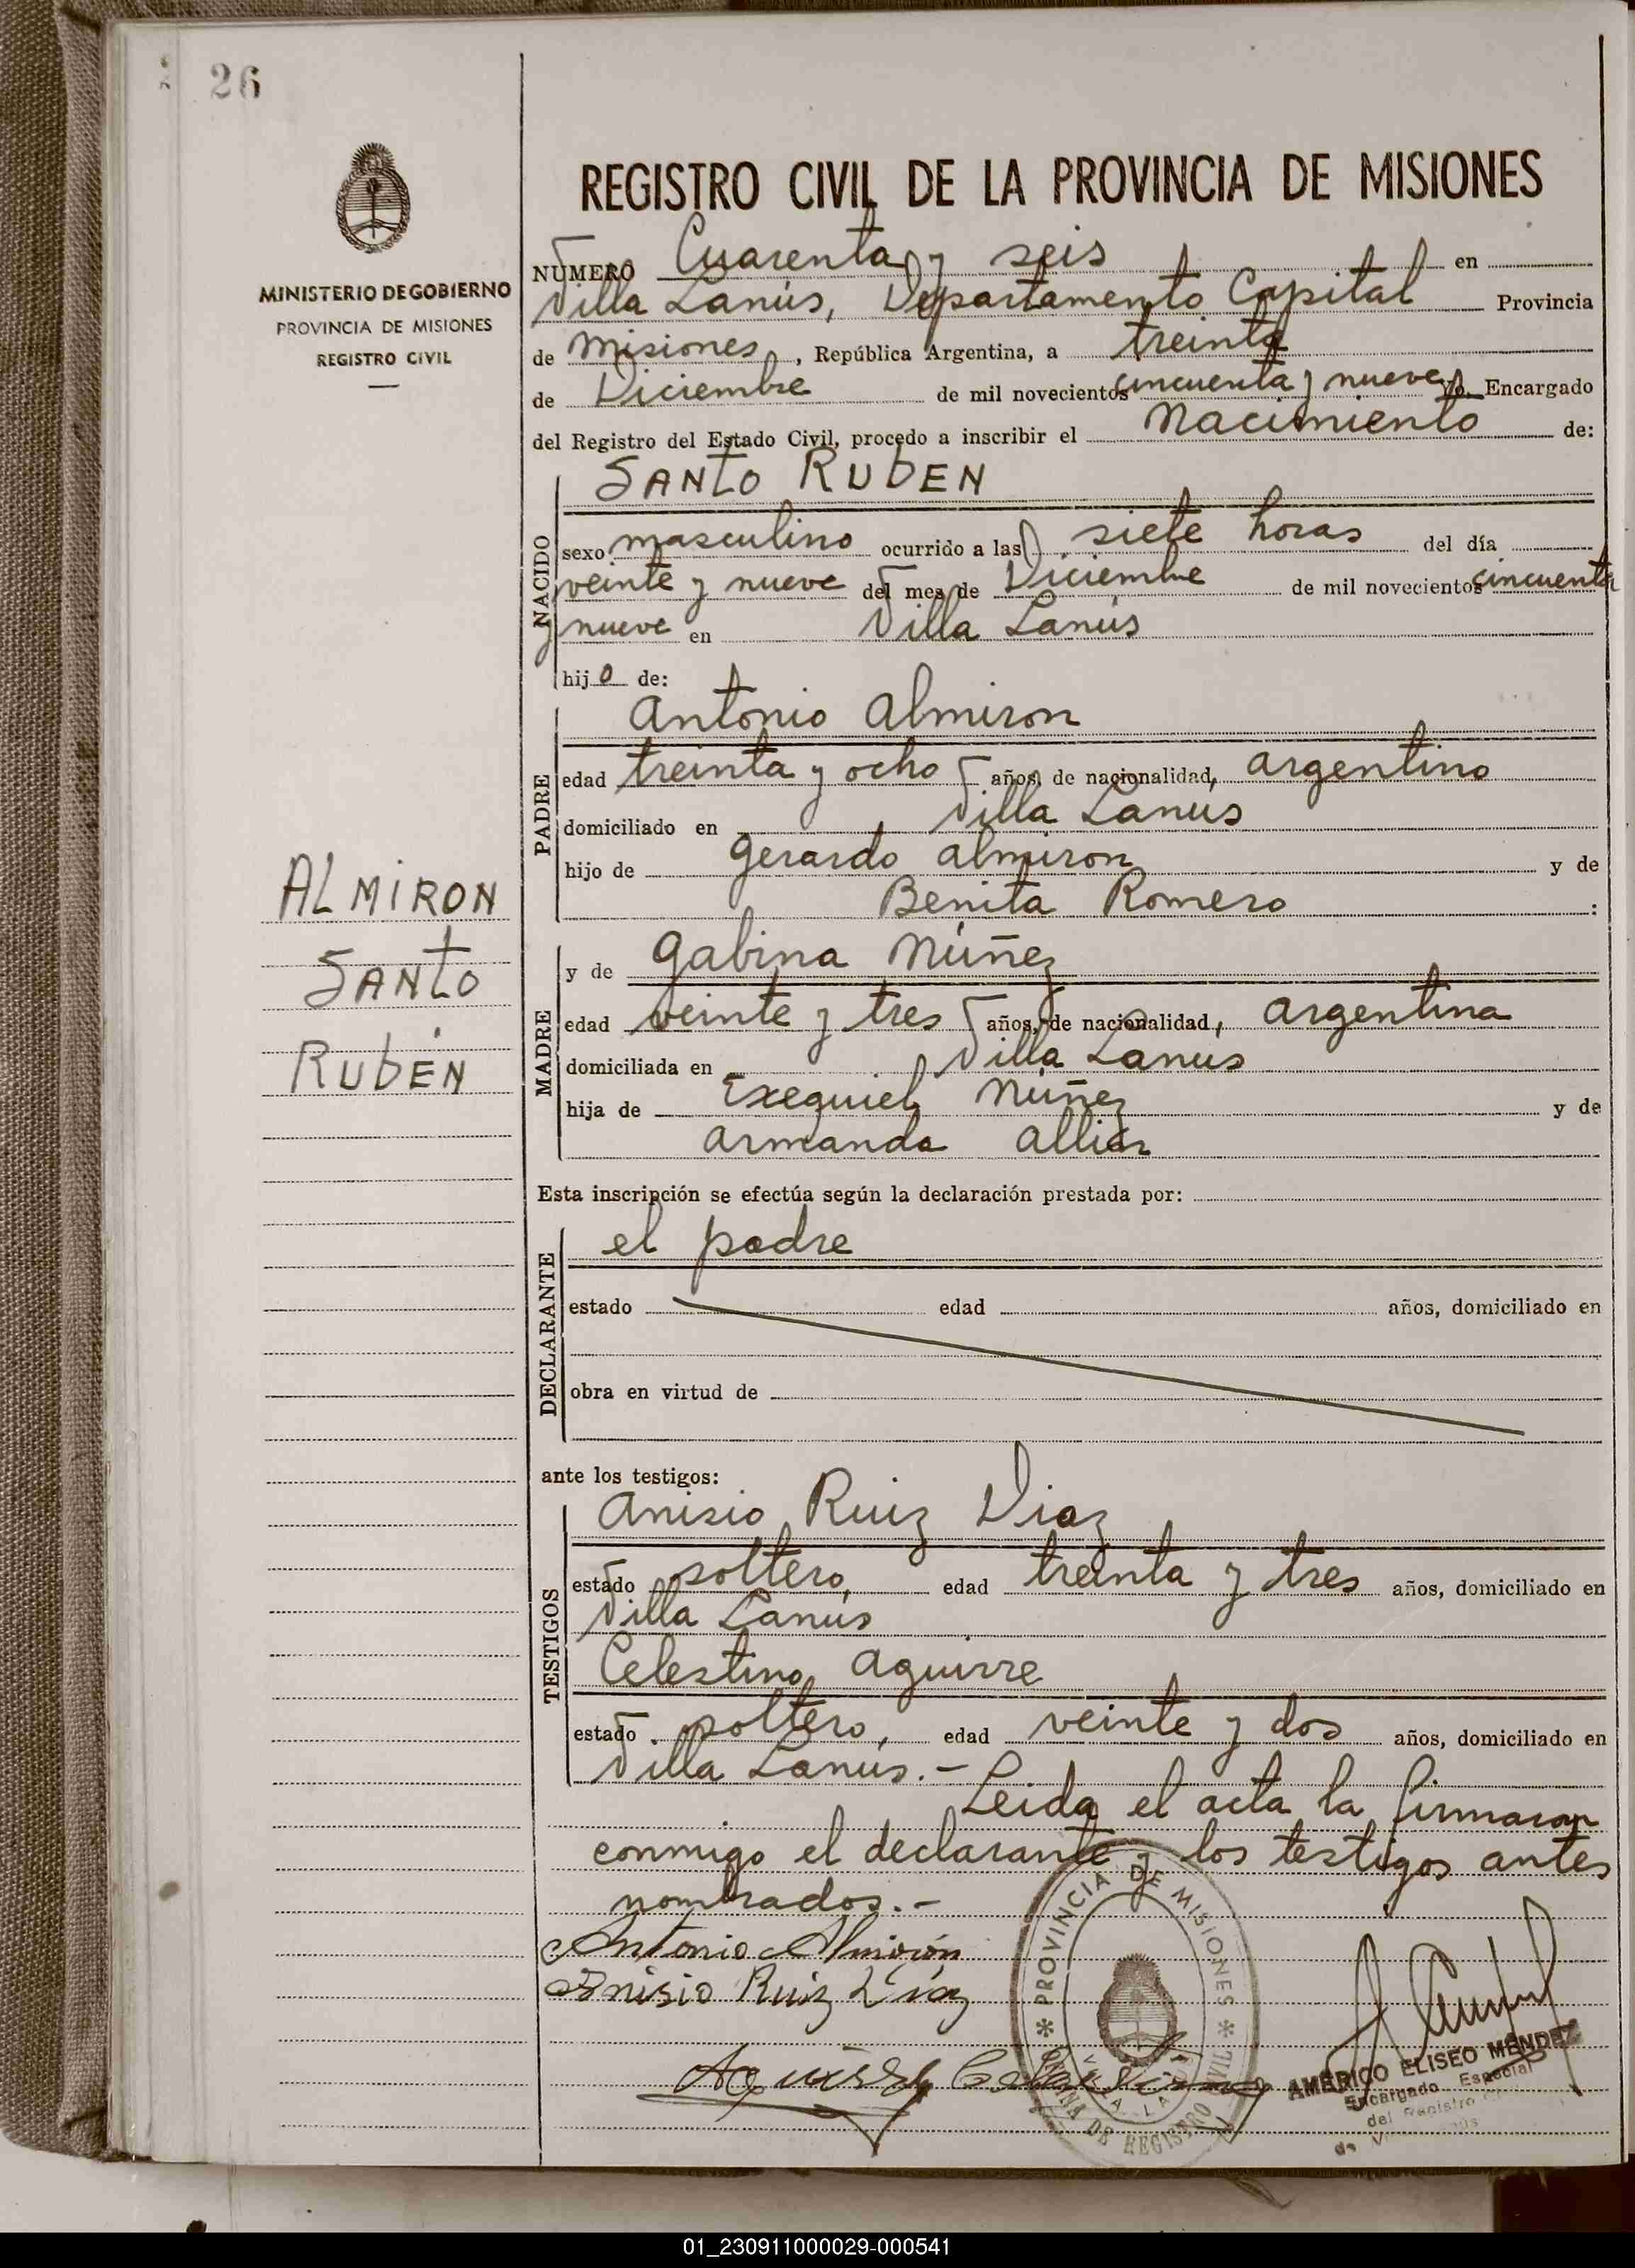 26
MINISTERIO DE GOBIERNO
PROVINCIA DE MISIONES
REGISTRO CIVIL
ALMIRON
SANTO
RUBEN
REGISTRO CIVIL DE LA PROVINCIA DE MISIONES
NUMERO Cuarenta y seis en
Villa Lanús, Departamento Capital Provincia
de Misiones, República Argentina, a treinta
de Diciembre de mil novecientos cincuenta y nueve Yo, Encargado
del Registro del Estado Civil, procedo a inscribir el Nacimiento de:
NACIDO
SANTO RUBEN
sexo masculino ocurrido a las siete horas del día
veinte y nueve del mes de Diciembre de mil novecientos cincuenta
y nueve en Villa Lanús
hijo de:
PADRE
Antonio Almiron
edad treinta y ocho años, de nacionalidad, argentino
domiciliado en Villa Lanus
hijo de Gerardo Almiron y de
Benita Romero :
MADRE
y de Gabina Núñez
edad veinte y tres años, de nacionalidad, argentina
domiciliada en Villa Lanús
hija de Exequiel Núñez y de
Armanda
Esta inscripción se efectúa según la declaración prestada por:
DECLARANTE
el padre
estado edad años, domiciliado en
obra en virtud de
ante los testigos:
TESTIGOS
Anisio Ruiz Diaz
estado soltero, edad treinta y tres años, domiciliado en
Villa Lanús
Celestino Aguirre
estado soltero, edad veinte y dos años, domiciliado en
Villa Lanús.-
Leida el acta la firmaron
conmigo el declarante y los testigos antes
nombrados.-
Antonio Almirón
Anisio Ruiz Díaz
Aguirre Celestino
PROVINCIA DE MISIONES
DE REGISTRO CIVIL
AMERICO ELISEO MENDEZ
Encargado Especial
del Registro
01_230911000029-000541